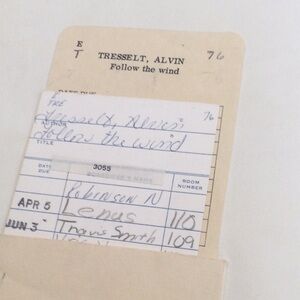 E
T
TRESSELT, ALVIN
76
Follow the wind
DATE DUE
E
TRE
76
Tresselt, Alvin
AUTHOR
Follow the wind
TITLE
3055
DATE DUE
BORROWER'S NAME
ROOM NUMBER
Robinson N
APR 5
Lenas
110
JUN 3
Travis Smith
109